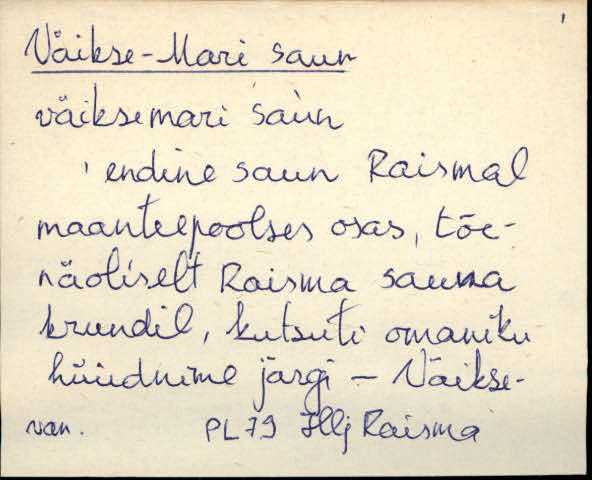 Väikse-Mari saun
väiksemari saùn
endine saun Raismal
maanteepoolses osas, tõe-
näoliselt Raisma sauna
krundil, kutsuti omaniku
hüüdnime järgi – Väikse-
van. PL 79 Illj Raisma